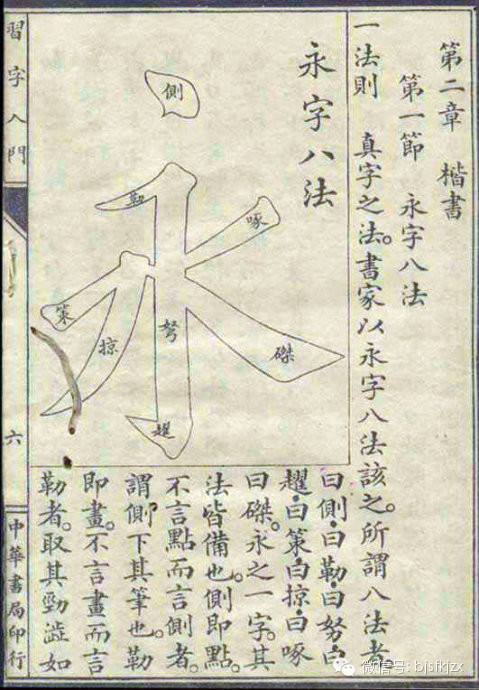 第二章 楷書
第一節 永字八法
一法則 真字之法。書家以永字八法該之。所謂八法者。
永字八法
側
勒
啄
策
掠
努
磔
趯
曰側。曰勒。曰努。曰
趯。曰策。曰掠。曰啄
曰磔。永之一字。其
法皆備也。側即點。
不言點而言側者。
謂側下其筆也。勒
即畫。不言畫而言
勒者。取其勁澁如
習字入門
六
中華書局印行
微信号: bjsfkjzx